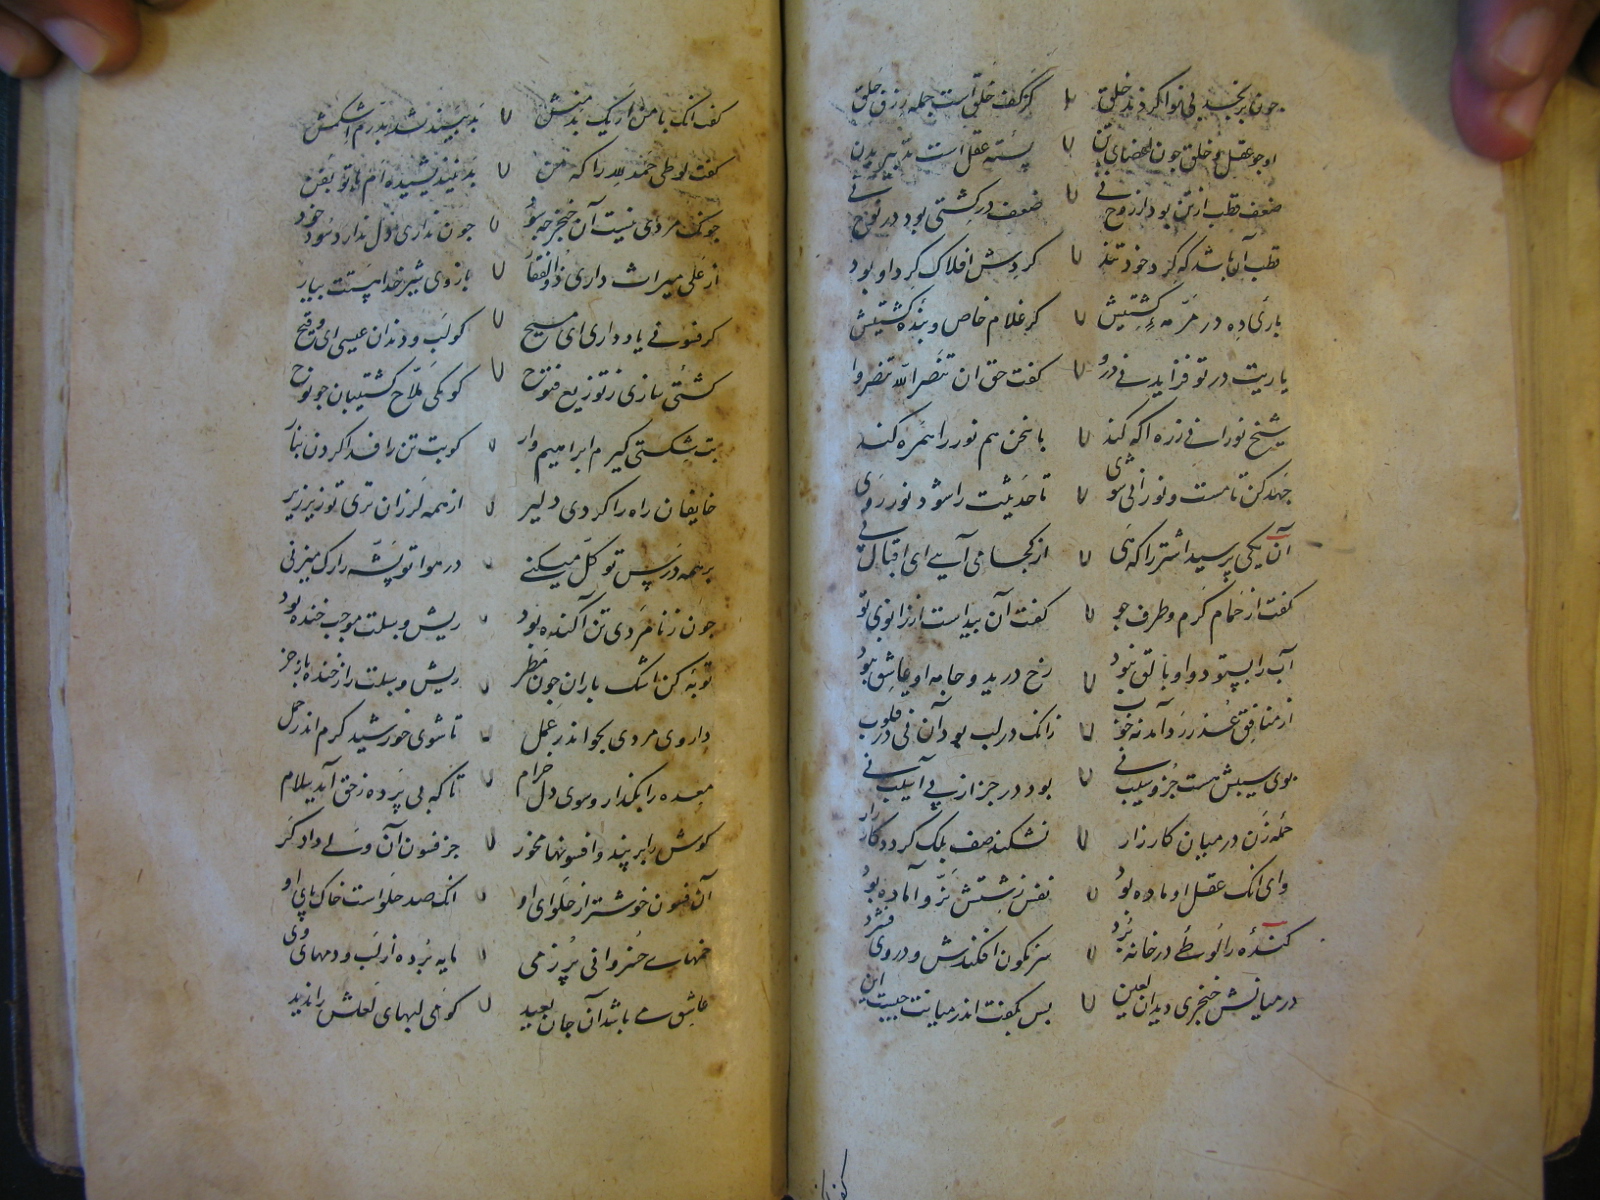 چون برنجد بی نوا کردند خلق کز کف خلق است جمله رزق خلق
او چو عقل و خلق چون اعضای تن بسته عقل است تدبیر بدن
ضعف قطب از تن بود از روح نی ضعف در کشتی بود در نوح نی
قطب آن باشد که کرد خود تند کردش افلاک کرد او بود
یاریی ده در مرمه کشتیش کر غلام خاص و بنده کشتیش
یاریت در تو فزاید نی درو کفت حق ان تنصروا الله تنصروا
شیخ نورانی ز ره اکه کند با سخن هم نور را همره کند
جهد کن تا مست و نورانی شوی تا حدیثت را شود نورش روی
آن یکی پرسید اشتر را که هی از کجا می آیی ای اقبال پی
کفت از حمام کرم کوی تو کفت آن پیداست از زانوی تو
از منافق عذر رد آمد نه خوب زانک در لب بود آن نی در قلوب
بوی سیبش هست جزو سیب نی بود در جز از پی آسیب نی
حمله زن در میان کارزار نشکند صف بلک کردد کار زار
وای آنک عقل او ماده بود نفس زشتش نر و آماده بود
کنده را لوطیی در خانه برد سرنکون افکندش و در وی فشرد
در میانش خنجری دید آن لعین پس بکفت اندر میانت چیست این
کفت آنک با من ار یک بد منش بد بیندیشد بدرم اشکمش
کفت لوطی حمد لله را که من بد نیندیشیده ام با تو بفن
چونک مردی نیست آن خنجر چه سود چون نداری دل ندارد سود خود
از علی میراث داری ذوالفقار بازوی شیر خدا هستت بیار
کر فسونی یاد داری ای مسیح کو لب و دندان عیسی ای وقیح
کشتی سازی ز توزیع فتوح کو یکی ملاح کشتیبان چو نوح
بت شکستی کیرم ابراهیم وار کو بت تن را فدا کردن بنار
خایفان راه را کردی دلیر از همه لرزان تری تو زیر زیر
بر همه درس توکل میکنی در هوا تو پشه را رک میزنی
چون ز نامردی تن آکنده بود ریش و سبلت موجب خنده بود
توبه کن اشک باران چون مطر ریش و سبلت را ز خنده باز خر
داروی مردی بجو اندر عمل تا شوی خورشید کرم اندر حمل
معده را بکذار و سوی دل خرام تا که بی پرده ز حق آید سلام
کوش را بر بند و افسونها مخور جز فسون آن ولی دادکر
آن فسون خوشتر از حلوای او آنک صد حلواست خاک پای او
خمهای خسروانی پر ز می مایه برده از لب و دمهای وی
عاشق می باشد آن جان بعید کو می لبهای لعلش را ندید